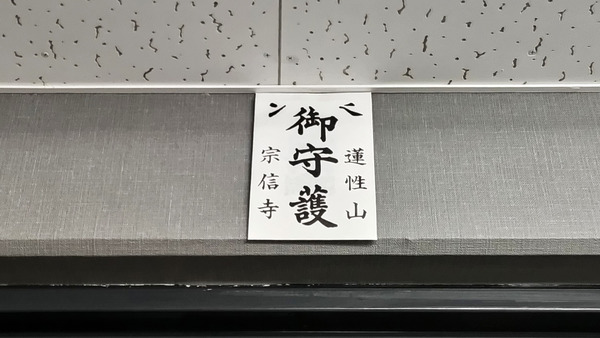 蓮性山
御守護
宗信寺